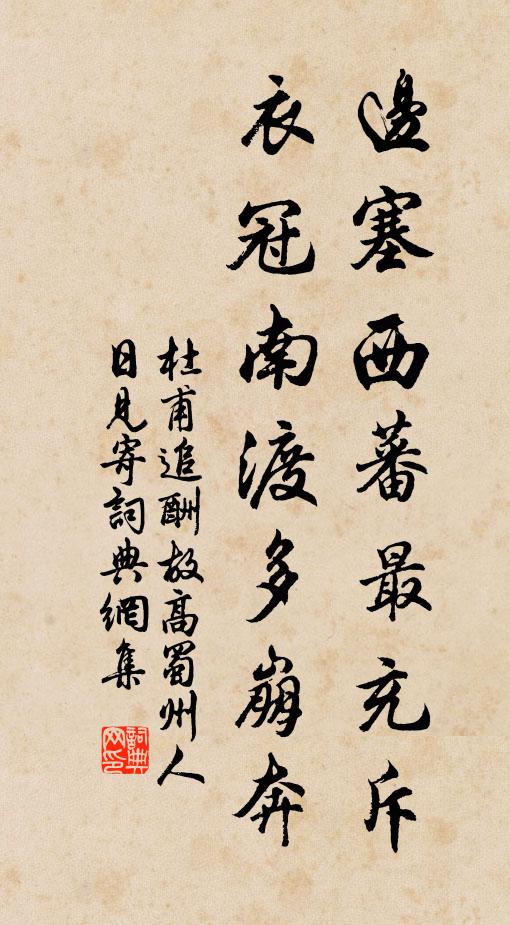 邊塞西蕃最充斥
衣冠南渡多崩奔
杜甫追酬故高蜀州人
日見寄詞典網集
詞典网印